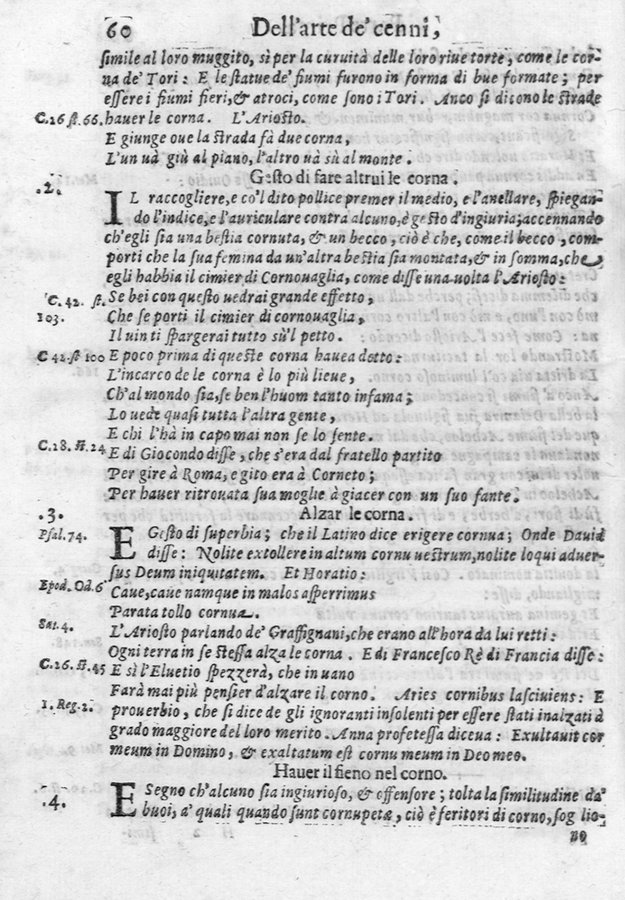 60 Dell'arte de' cenni,
simile al loro muggito, sì per la curuità delle loro riue torte, come le cor-
na de' Tori: E le statue de' fiumi furono in forma di bue formate; per
essere i fiumi fieri, & atroci, come sono i Tori. Anco si dicono le strade
C.26 st.66. hauer le corna. L'Ariosto.
E giunge oue la strada fà due corna,
L'un uà giù al piano, l'altro uà sù al monte.
Gesto di fare altrui le corna.
.2.
IL raccogliere, e co'l dito pollice premer il medio, e l'anellare, spiegan-
do l'indice, e l'auriculare contra alcuno, è gesto d'ingiuria; accennando
ch'egli sia una bestia cornuta, & un becco, ciò è che, come il becco, com-
porti che la sua femina da un'altra bestia sia montata, & in somma, che
egli habbia il cimier di Cornouaglia, come disse una uolta l'Ariosto:
C. 42. st. Se bei con questo uedrai grande effetto,
103. Che se porti il cimier di cornouaglia,
Il uin ti spargerai tutto sù'l petto.
C 42 st 100 E poco prima di queste corna hauea detto:
L'incarco de le corna è lo più lieue,
Ch'al mondo sia, se ben l'huom tanto infama;
Lo uede quasi tutta l'altra gente,
E chi l'hà in capo mai non se lo sente.
C.28. st.24 E di Giocondo disse, che s'era dal fratello partito
Per gire à Roma, e gito era à Corneto;
Per hauer ritrouata sua moglie à giacer con un suo fante.
.3. Alzar le corna.
Psal.74. E Gesto di superbia; che il Latino dice erigere cornua; Onde Dauid
disse: Nolite extollere in altum cornu uestrum, nolite loqui aduer-
sus Deum iniquitatem. Et Horatio:
Epod. Od.6 Caue, caue namque in malos asperrimus
Parata tollo cornua.
Sat.4. L'Ariosto parlando de' Graffignani, che erano all'hora da lui retti:
Ogni terra in se stessa alza le corna. E di Francesco Rè di Francia disse:
C.26. st.45 E sì l'Eluetio spezzerà, che in uano
Farà mai più pensier d'alzare il corno. Aries cornibus lasciuiens: E
1. Reg.2. prouerbio, che si dice de gli ignoranti insolenti per essere stati inalzati à
grado maggiore del loro merito. Anna profetessa diceua: Exultauit cor
meum in Domino, & exaltatum est cornu meum in Deo meo.
Hauer il fieno nel corno.
.4. E Segno ch'alcuno sia ingiurioso, & offensore; tolta la similitudine da'
buoi, a' quali quando sunt cornupetæ, ciò è feritori di corno, soglio-
no